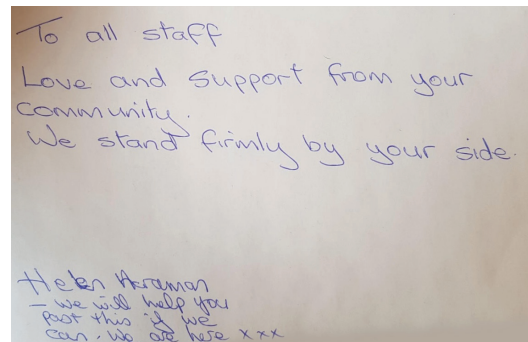 To all staff
Love and Support from your
community.
We stand firmly by your side.
Helen
- we will help you
past this if we
can. We are here xxx